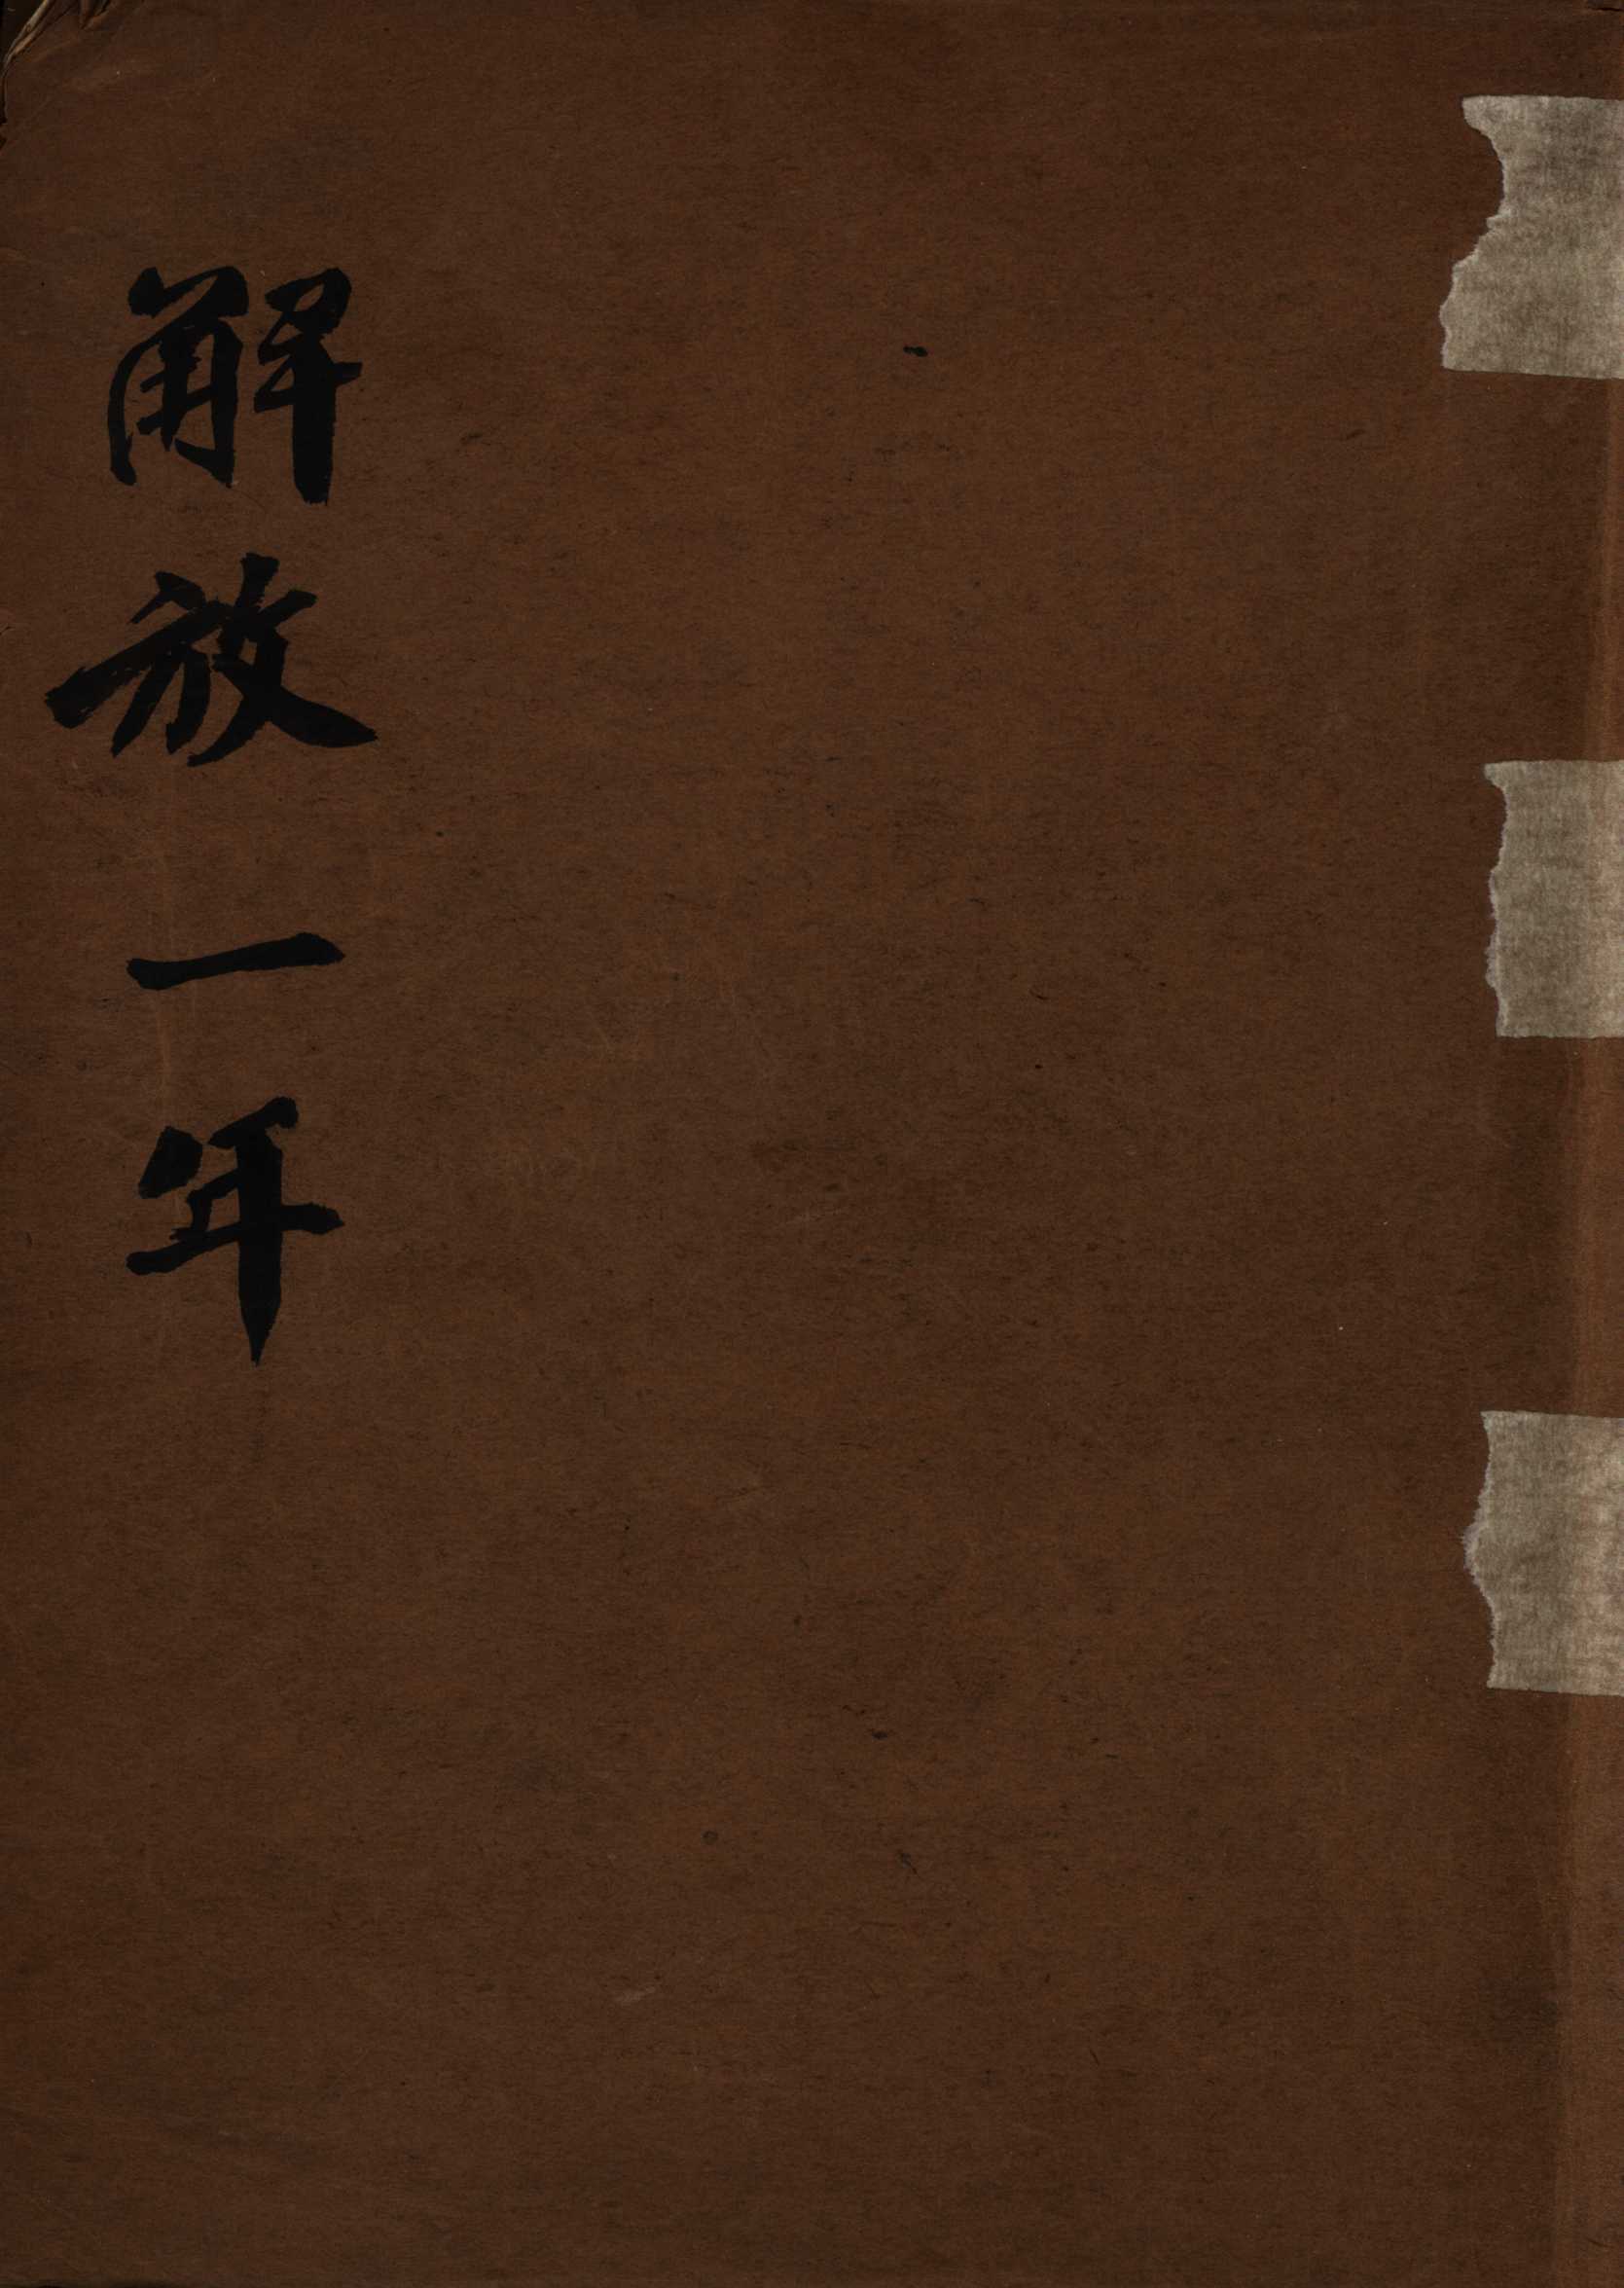 解放一年